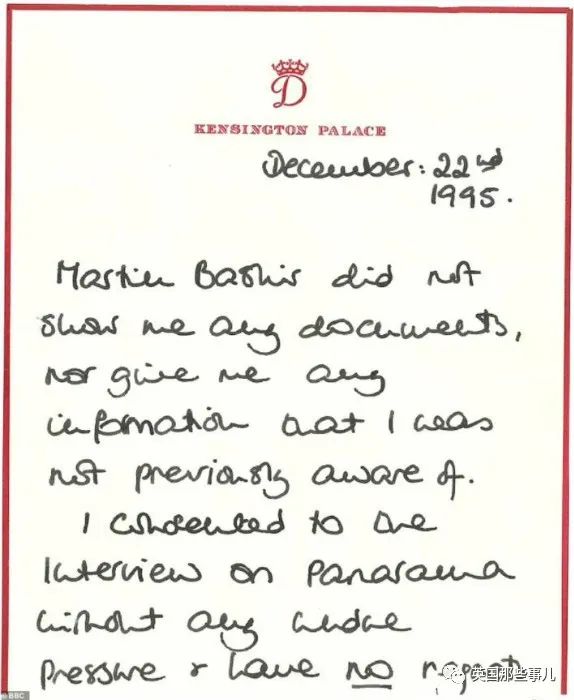 D
KENSINGTON PALACE
December: 22nd
1995.
Martin Bashir did not
show me any documents,
nor give me any
information that I was
not previously aware of.
I consented to the
interview on Panarama
without any undue
pressure & have no regret
BBC
英国那些事儿